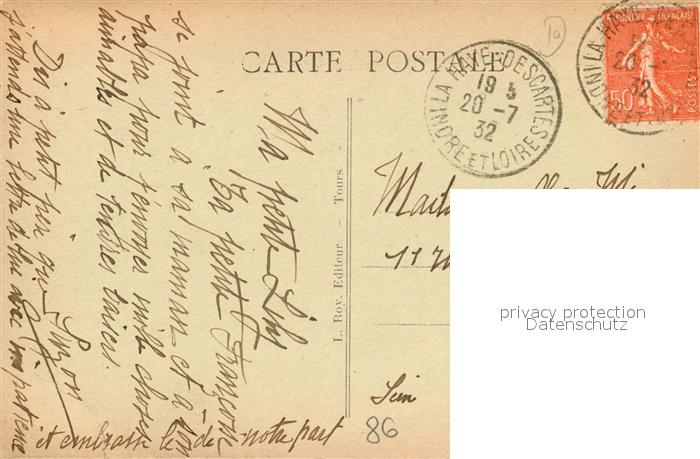 CARTE POSTALE
LA HAYE-DESCARTES
19 5
20 -7
32
INDRE ET LOIRE
RÉPUBLIQUE FRANÇAISE
50
10
Ma petite Lili
Ta petite Françoise
se joint à sa maman et à son
papa pour t'envoyer mille choses
aimables et de tendres baisers
Suzon
Dis à petit qui
j'attends une lettre de lui avec impatience
et embrasse le de notre part
L. Roy, Editeur. - Tours -
Mademoiselle
117
Sein
86
privacy protection
Datenschutz